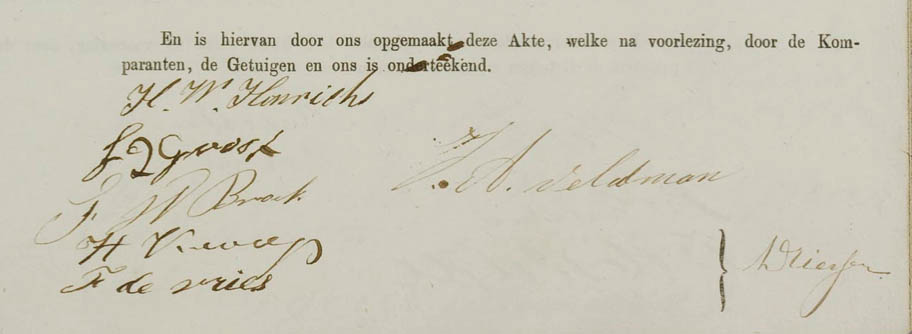 En is hiervan door ons opgemaakt deze Akte, welke na voorlezing, door de Kom-
paranten, de Getuigen en ons is onderteekend.
H. W. Honrichs
Groost
F W Brock
H. A. Veldman
H
F de Vries